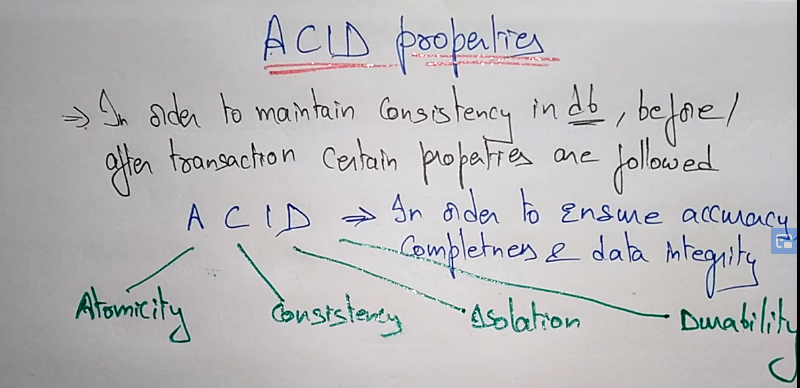 ACID properties
⇒ In order to maintain Consistency in db, before/
after transaction Certain properties are followed
A C I D ⇒ In order to Ensure accuracy
Completness & data integrity
Atomicity Consistency Isolation Durability